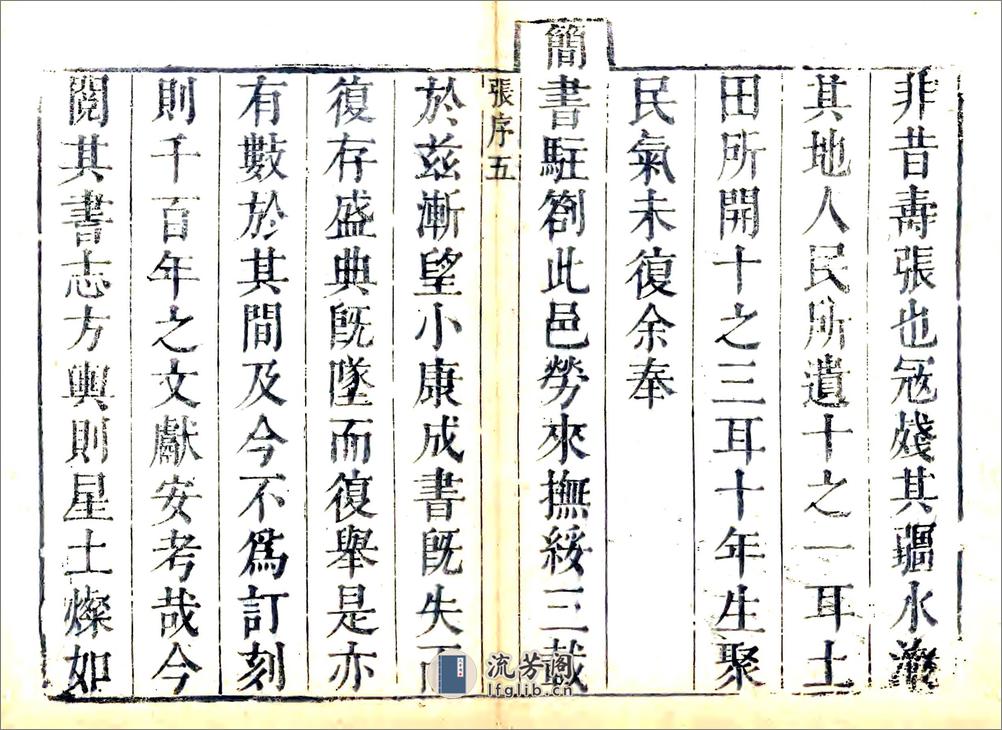 非昔壽張也冦殘其疆水潦
其地人民所遺十之一耳土
田所開十之三耳十年生聚
民氣未復余奉
簡書駐劄此邑勞來撫綏三載
張序五
於茲漸望小康成書旣失而
復存盛典旣墜而復舉是亦
有數於其間及今不爲訂刻
則千百年之文獻安考哉今
閱其書志方輿則星土燦如
流芳閣
lfglib.cn